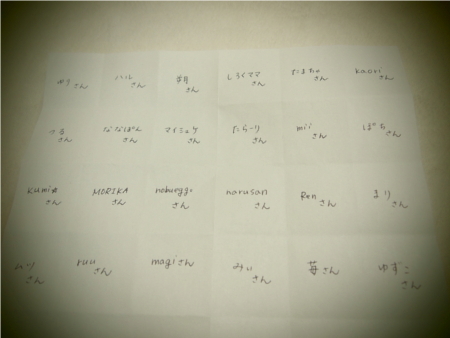 ゆう さん
ハル さん
さん
しろくママ さん
たまちゃ さん
Kaori さん
さん
ななぽん さん
マイミュウ さん
たらーり さん
mii さん
ぽち さん
Kumi☆ さん
MORIKA さん
さん
narusan さん
Ren さん
まり さん
さん
ruu さん
magiさん
みぃ さん
苺さん
ゆずこ さん